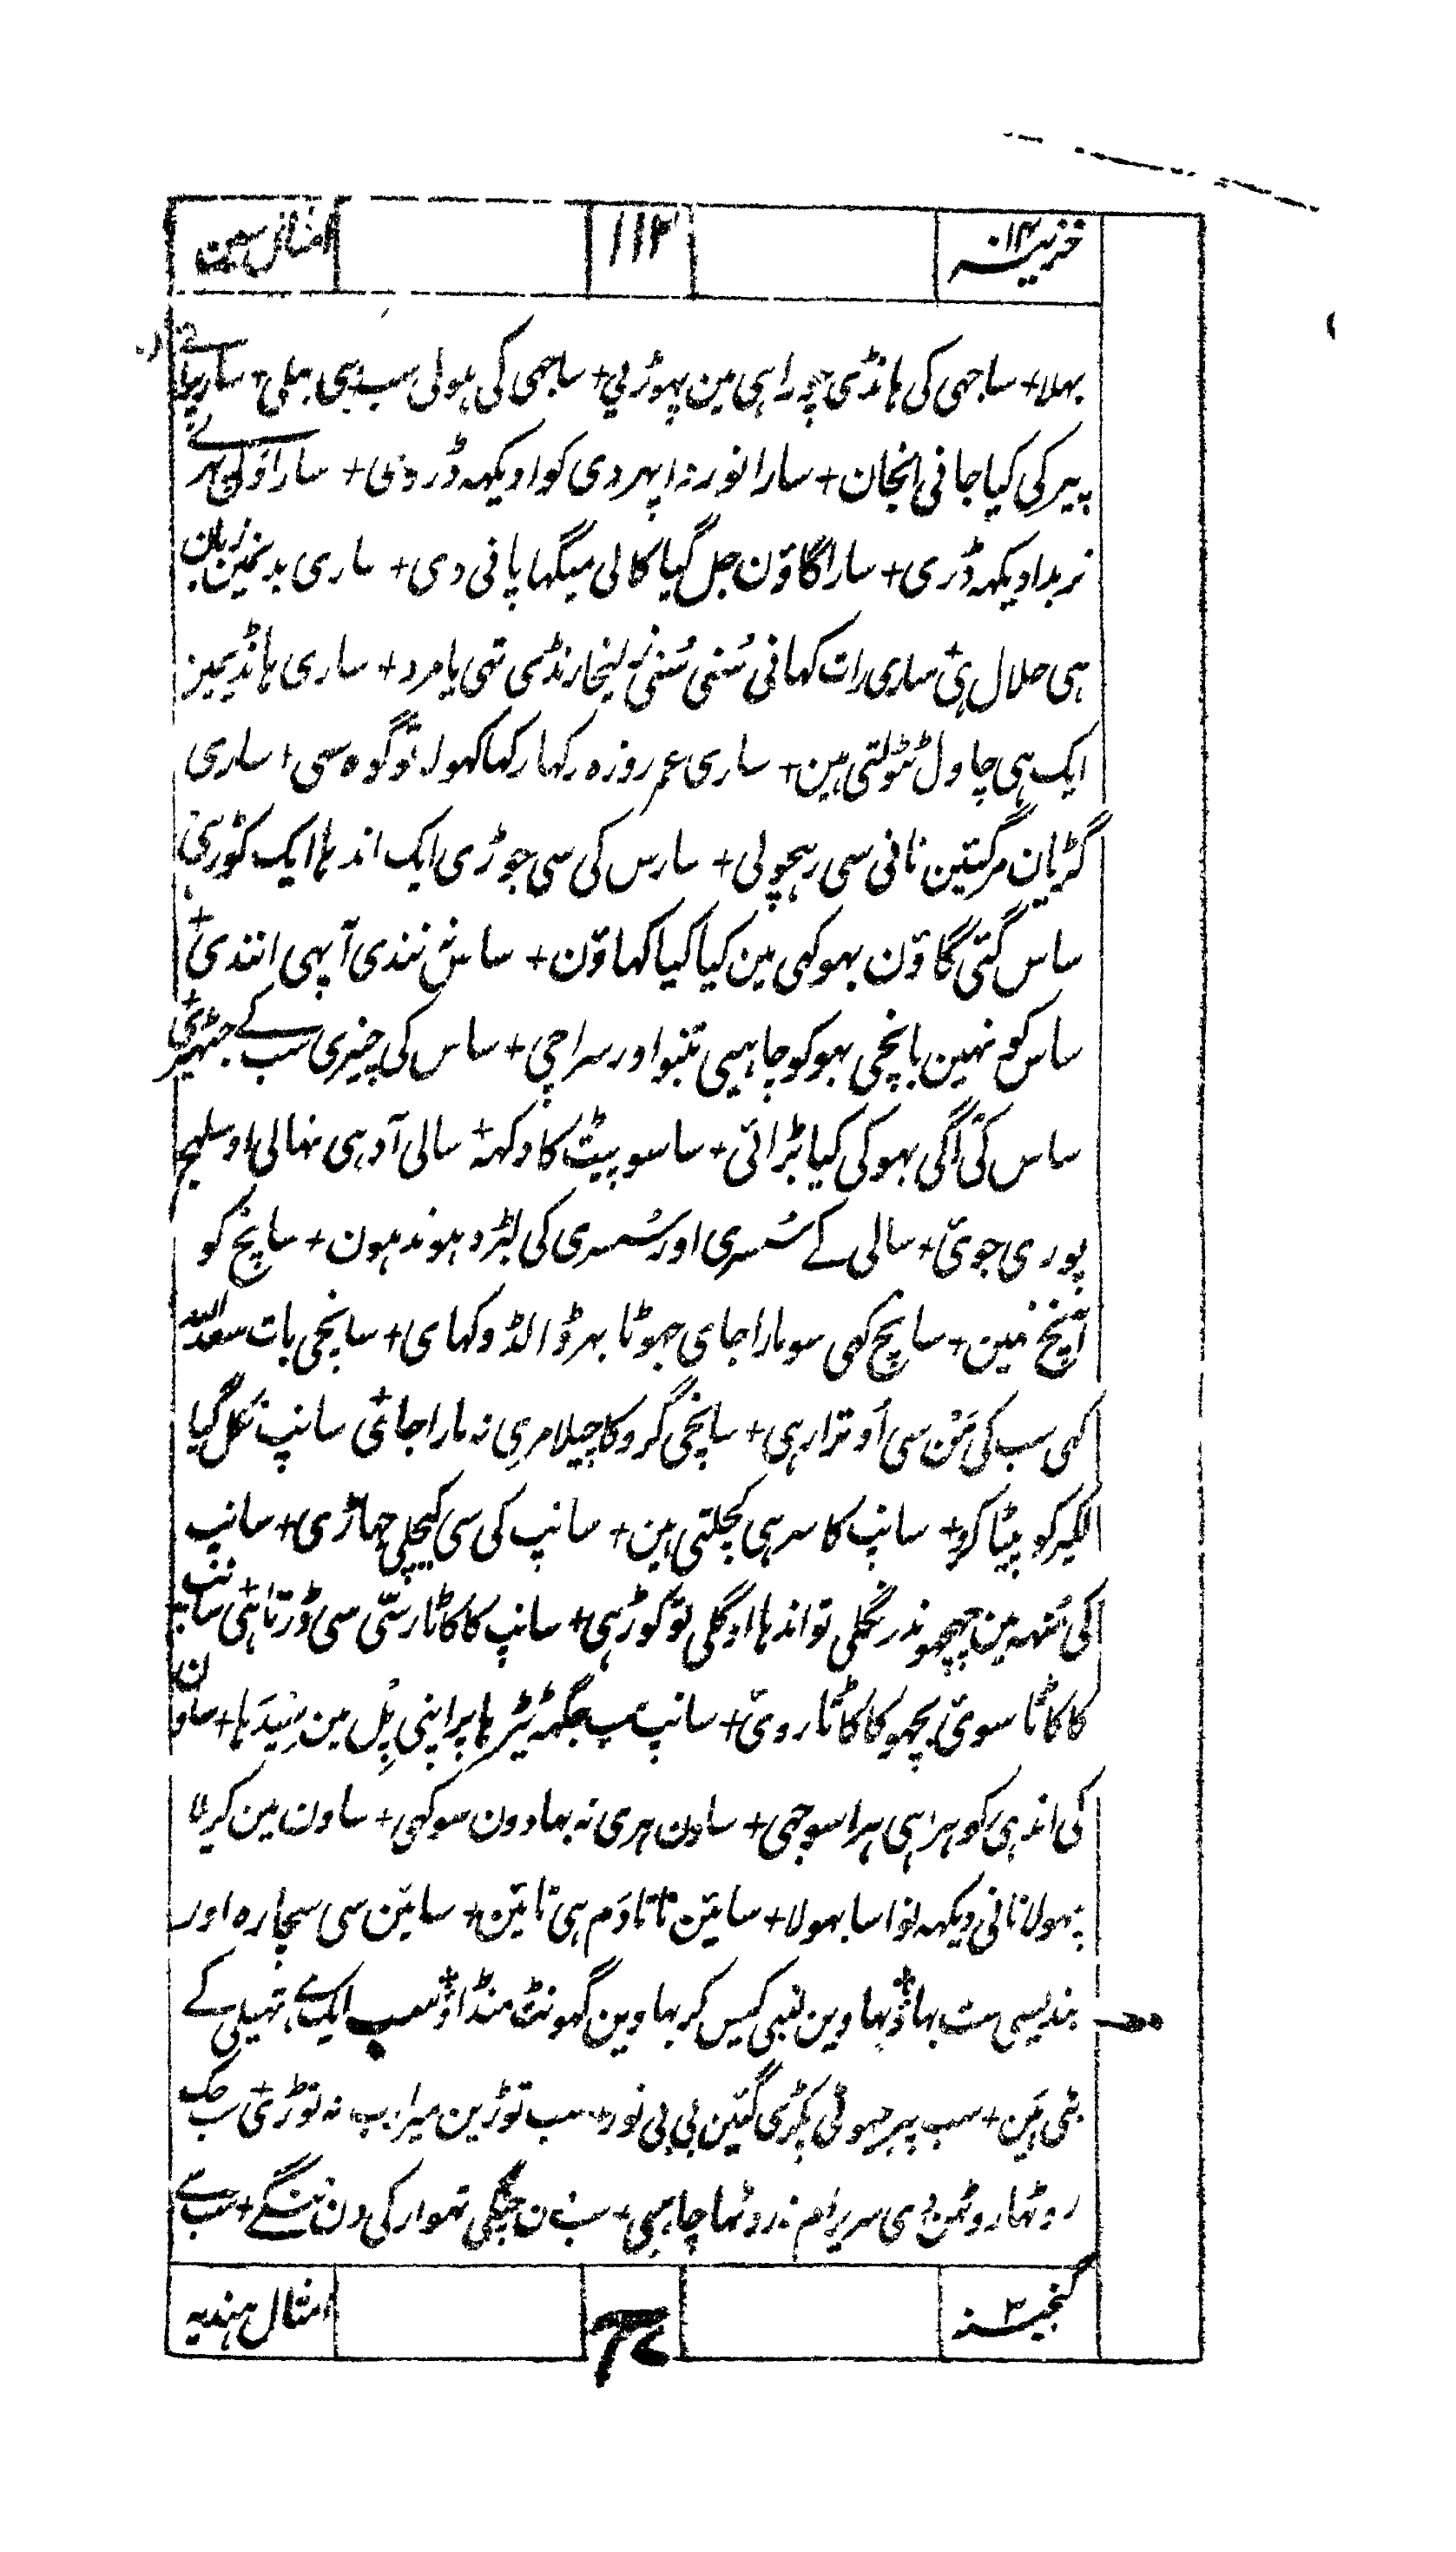 خزینہ ۱۴
۱۱۲
امثال سین
بہلا + ساجہی کی ہانڈی چوراہی مین پہوڑیی + ساجہی کی ہولی سب سی بہلی +
پیر کی کیا جانی انجان + سارا نور نہ ادیکہہ ڈرونی + سارا
نربدا دیکہہ ڈری + سارا گاؤن جل گیا کالی میگہا پانی دی + ساری بدنمین زبان
ہی حلال ہی + ساری رات کہانی سُنی سُنی زلیخا رنڈی تہی یا مرد + ساری ہانڈیمین
ایک ہی چاول ٹٹولتی ہین + ساری عمر روزہ رکہا رکہا کہولا تو گوہ سی + ساری
گڑیان مرگئین نانی سی رہچولی + سارس کی سی جوڑی ایک اندہا ایک کوڑہی
ساس گئی گاؤن بہو کہی مین کیا کیا کہاؤن + ساس نہ نندی آپہی انندی +
ساس کو نہین پانچی بہو کو چاہیی تنبو اور سراچی + ساس کی چیری سب کے جٹہیری +
ساس کی آگی بہو کی کیا بڑائی + ساسو پیٹ کا دکہہ + سالی آدہی نہالی اوسلہج
پوری جوی + سالی کے سُسری اور سُسری کی لبڑد ہوند ہون + سانچ کو
آنچ نہین + سانچ کہی سو مارا جای جہوٹا بہڑوا لڈو کہای + سانچی بات سعداللہ
کہی سب کی مَن سی اُوترا رہی + سانچی گرو کا چیلا مری نہ مارا جائی + سانپ نکل گیا
لکیر کو پیٹا کرو + سانپ کا سر ہی کچلتی ہین + سانپ کی سی کیچلی جہاڑی + سانپ
کی مُنہہ مین چہچہوندر نگلی تو اندہا اوگلی تو کوڑہی + سانپ کا کاٹا رسّی سی ڈرتا ہی + سانپ
کا کاٹا سوئی بچہو کا کاٹا روئی + سانپ سب جگہہ ٹیڑہا پر اپنی بِل مین سِیدَہا + ساون
کی اندہی کو ہرا ہی ہرا سوجہی + ساون ہری نہ بہادون سوکہی + ساون مین کریلا
پہولا نانی دیکہہ نواسا بہولا + سائین تاتا دَم ہی تائین + سائین سی سچارہ اور
بندیسی ست بہاؤ بہاوین لنبی کیس کر بہاوین گہونٹ منڈاؤ + سب ایک تہیلی کے
بٹی ہَین + سب پیر جہوٹی پکڑی گئین بی بی نور + سب توڑین میرا رب نہ توڑی + سب جگ
روٹہا روٹہن دی سریرام نہ روٹہا چاہیی + سب دن چنگی تہوار کی دن ننگے + سب سے
گنجینہ ۲
امثال ہندیہ